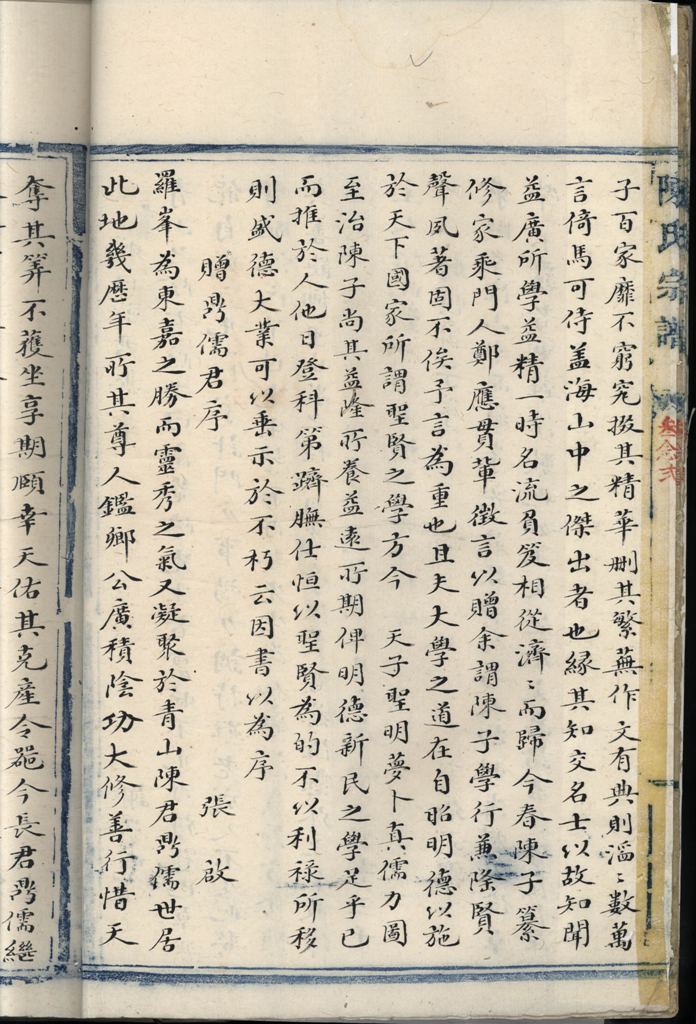 陳氏宗譜
子百家靡不窮究掇其精華刪其繁蕪作文有典則滔〻數萬
言倚馬可待盖海山中之傑出者也緣其知交名士以故知聞
益廣所學益精一時名流負笈相從濟〻而歸今春陳子纂
修家乘門人鄭應貫輩徵言以贈余謂陳子學行兼隆賢
聲夙著固不俟予言為重也且夫大學之道在自昭明德以施
於天下國家所謂聖賢之學方今 天子聖明夢卜真儒力圖
至治陳子尚其益隆所養益遠所期俾明德新民之學足乎已
而推於人他日登科第躋膴仕恒以聖賢為的不以利祿所移
則盛德大業可以垂示於不朽云因書以為序
贈勗儒君序 張啟
羅峯為東嘉之勝而靈秀之氣又凝聚於青山陳君勗儒世居
此地幾歷年所其尊人鑑鄉公廣積陰功大修善行惜天
奪其筭不獲坐享期頤幸天佑其克產令嗣今長君勗儒繼